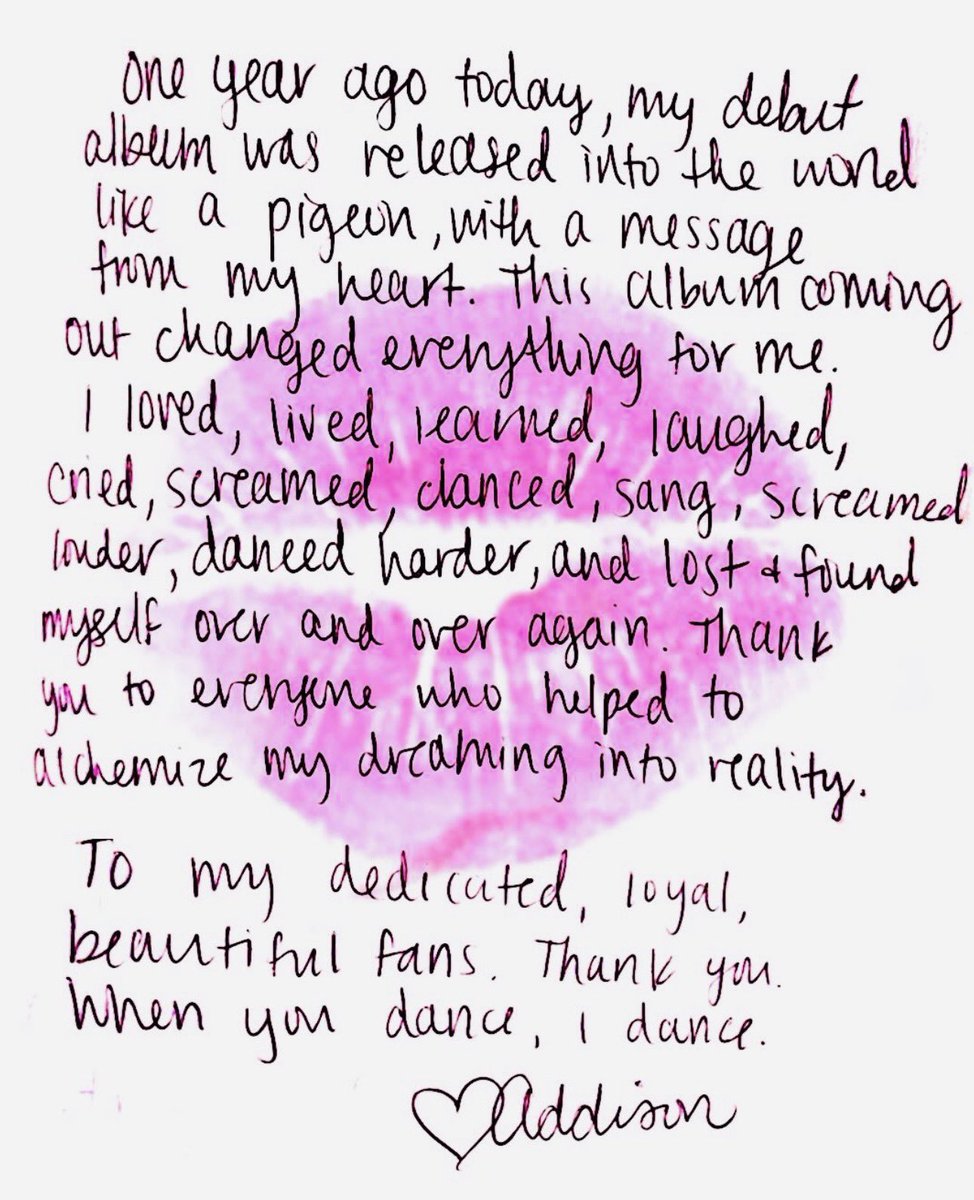 One year ago today, my debut
album was released into the world
like a pigeon, with a message
from my heart. This album coming
out changed everything for me.
I loved, lived, learned, laughed,
cried, screamed, danced, sang, screamed
louder, danced harder, and lost & found
myself over and over again. Thank
you to everyone who helped to
alchemize my dreaming into reality.
To my dedicated, loyal,
beautiful fans. Thank you.
When you dance, I dance.
♡Addison